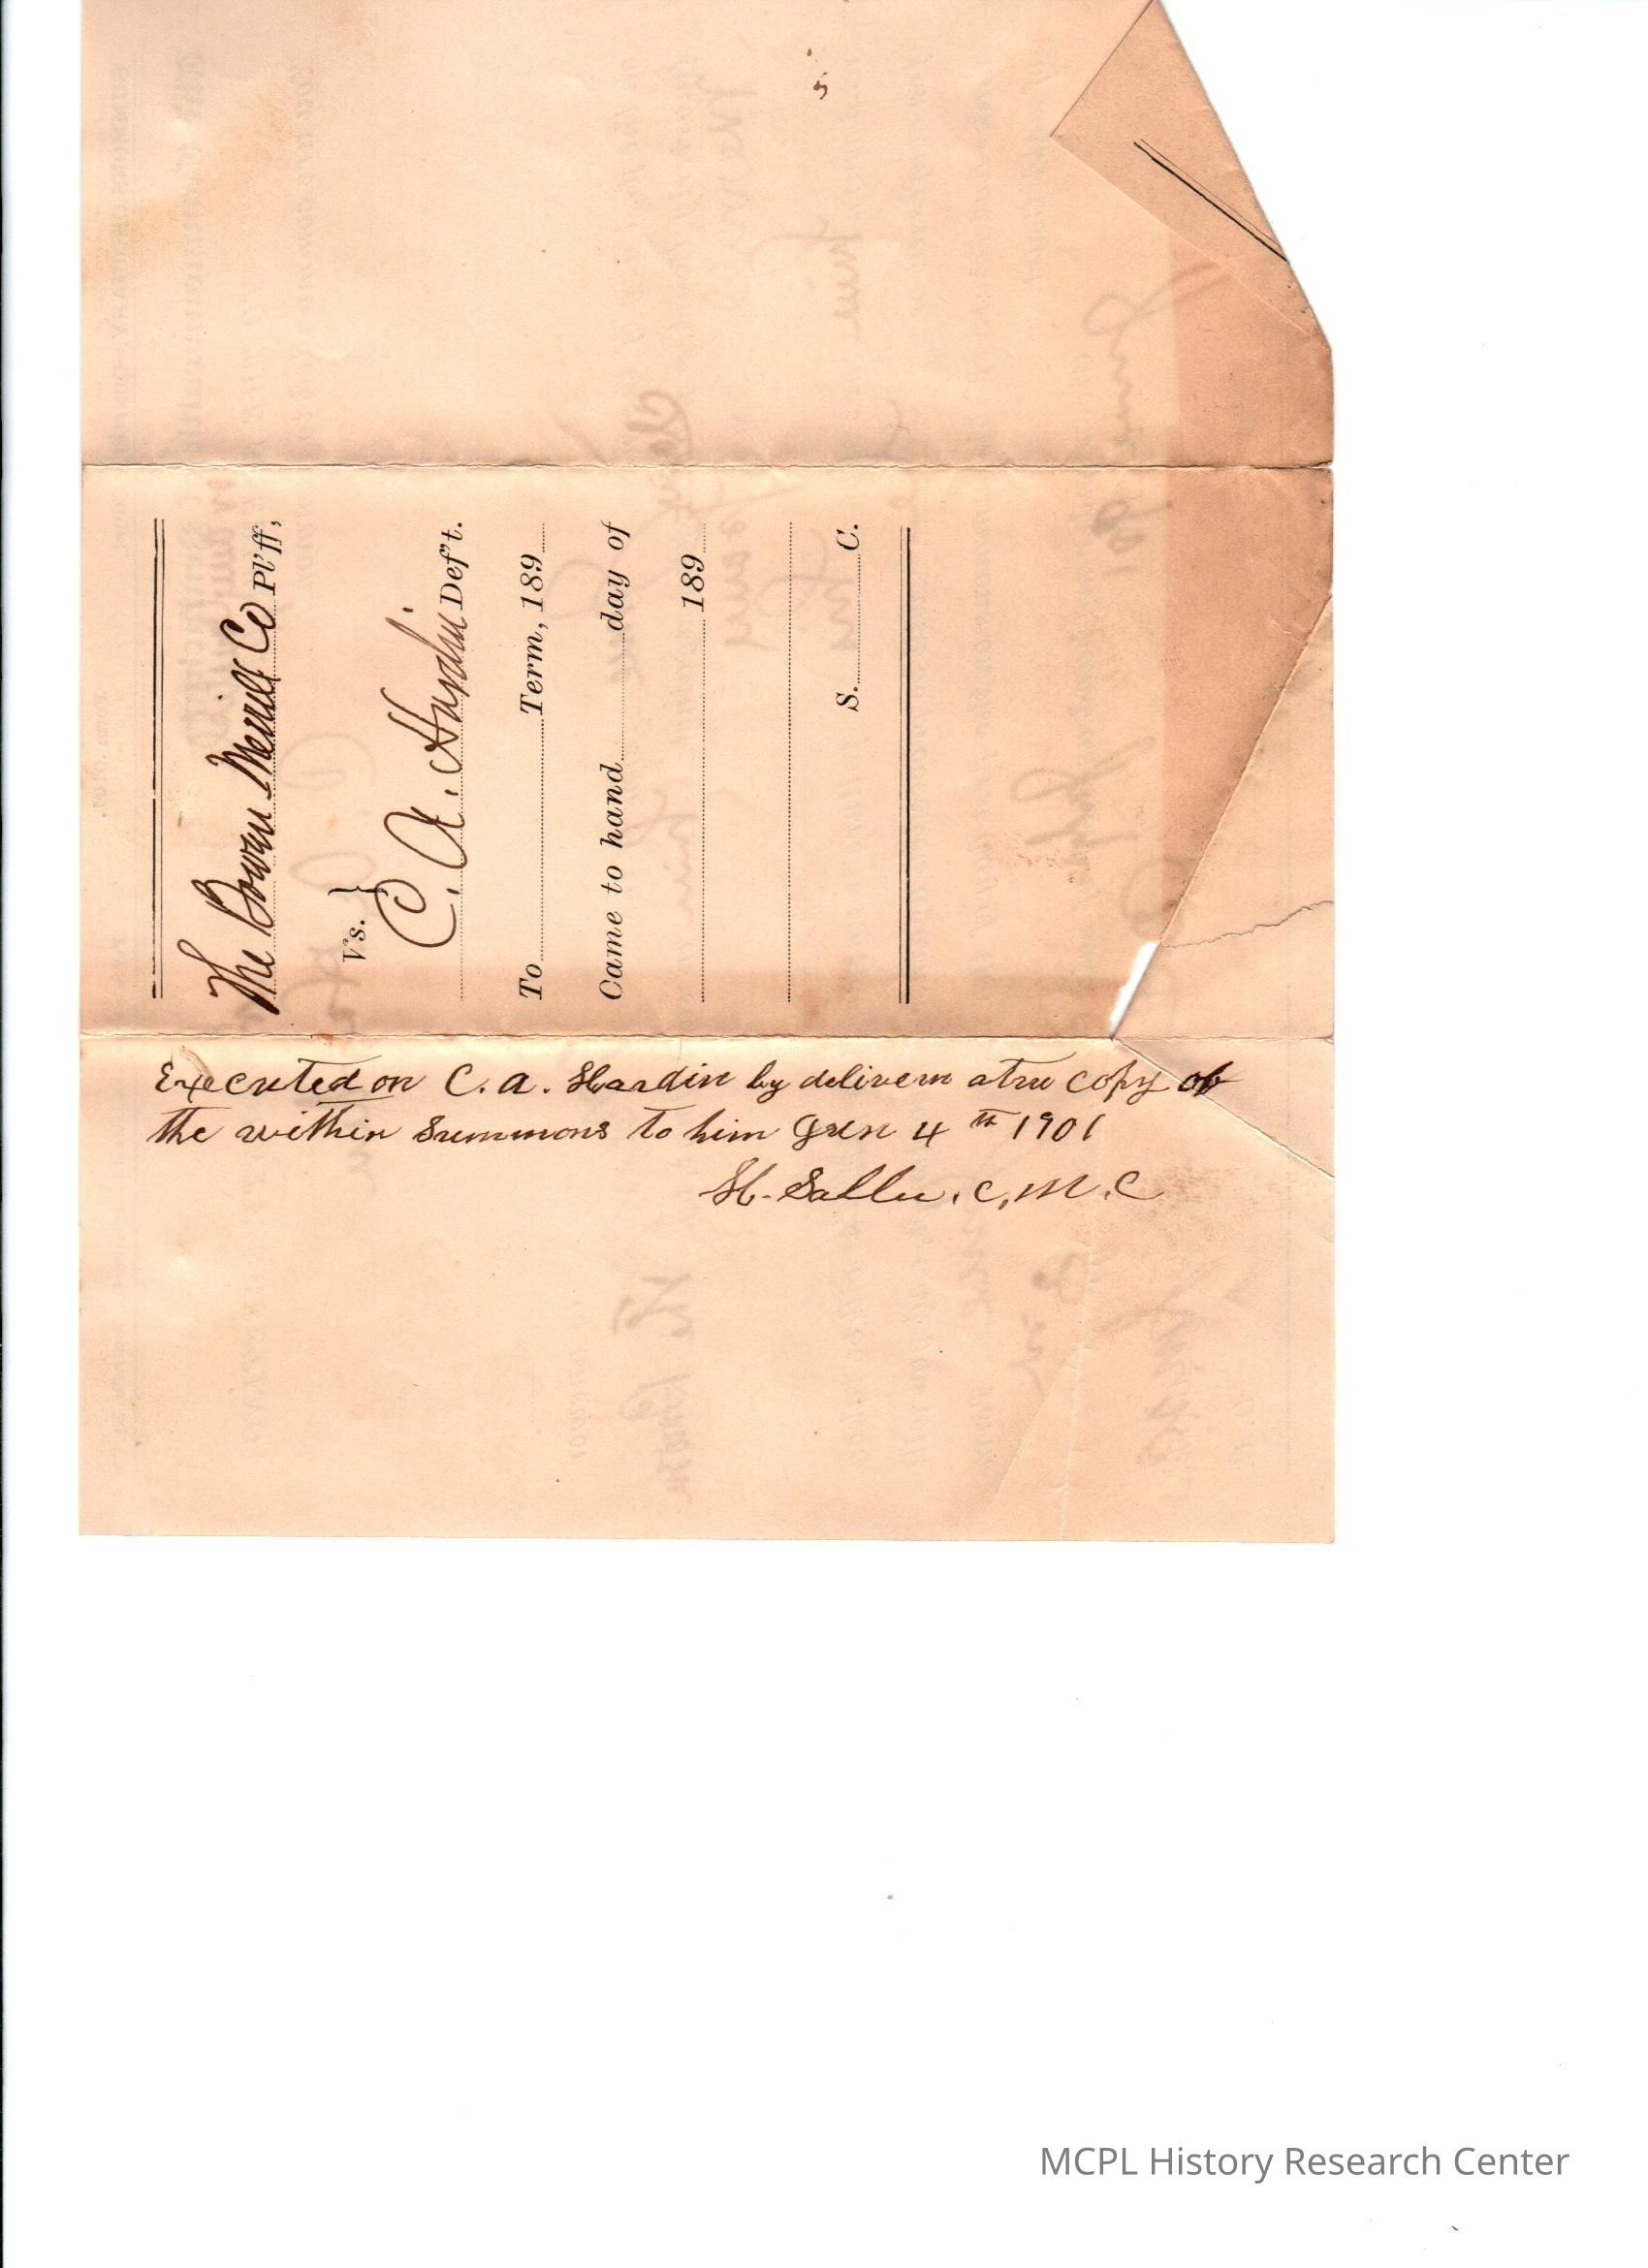 The Bowen Merrill Co Pl'ff,
Vs. }
C. A. Hardin Def't.
To Term, 189
Came to hand day of
189
S. C.
Executed on C. a. Hardin by delivern a tru copy of
the within Summons to him Jun 4th 1901
H. Sallee. C, M. C
MCPL History Research Center